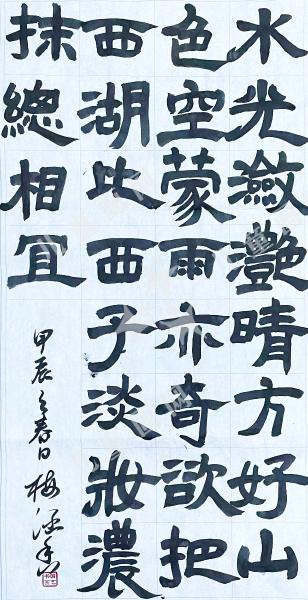 水光瀲灩晴方好山
色空蒙雨亦奇欲把
西湖比西子淡妝濃
抹總相宜
甲辰之春日梅